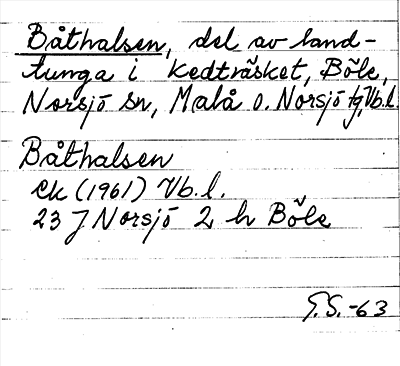 Båthalsen, del av land-
tunga i Kedträsket, Böle,
Norsjö sn, Malå o. Norsjö tg, Vb.l.
Båthalsen
Ek (1961) Vb.l.
23 J Norsjö 2 h Böle
G.S.-63